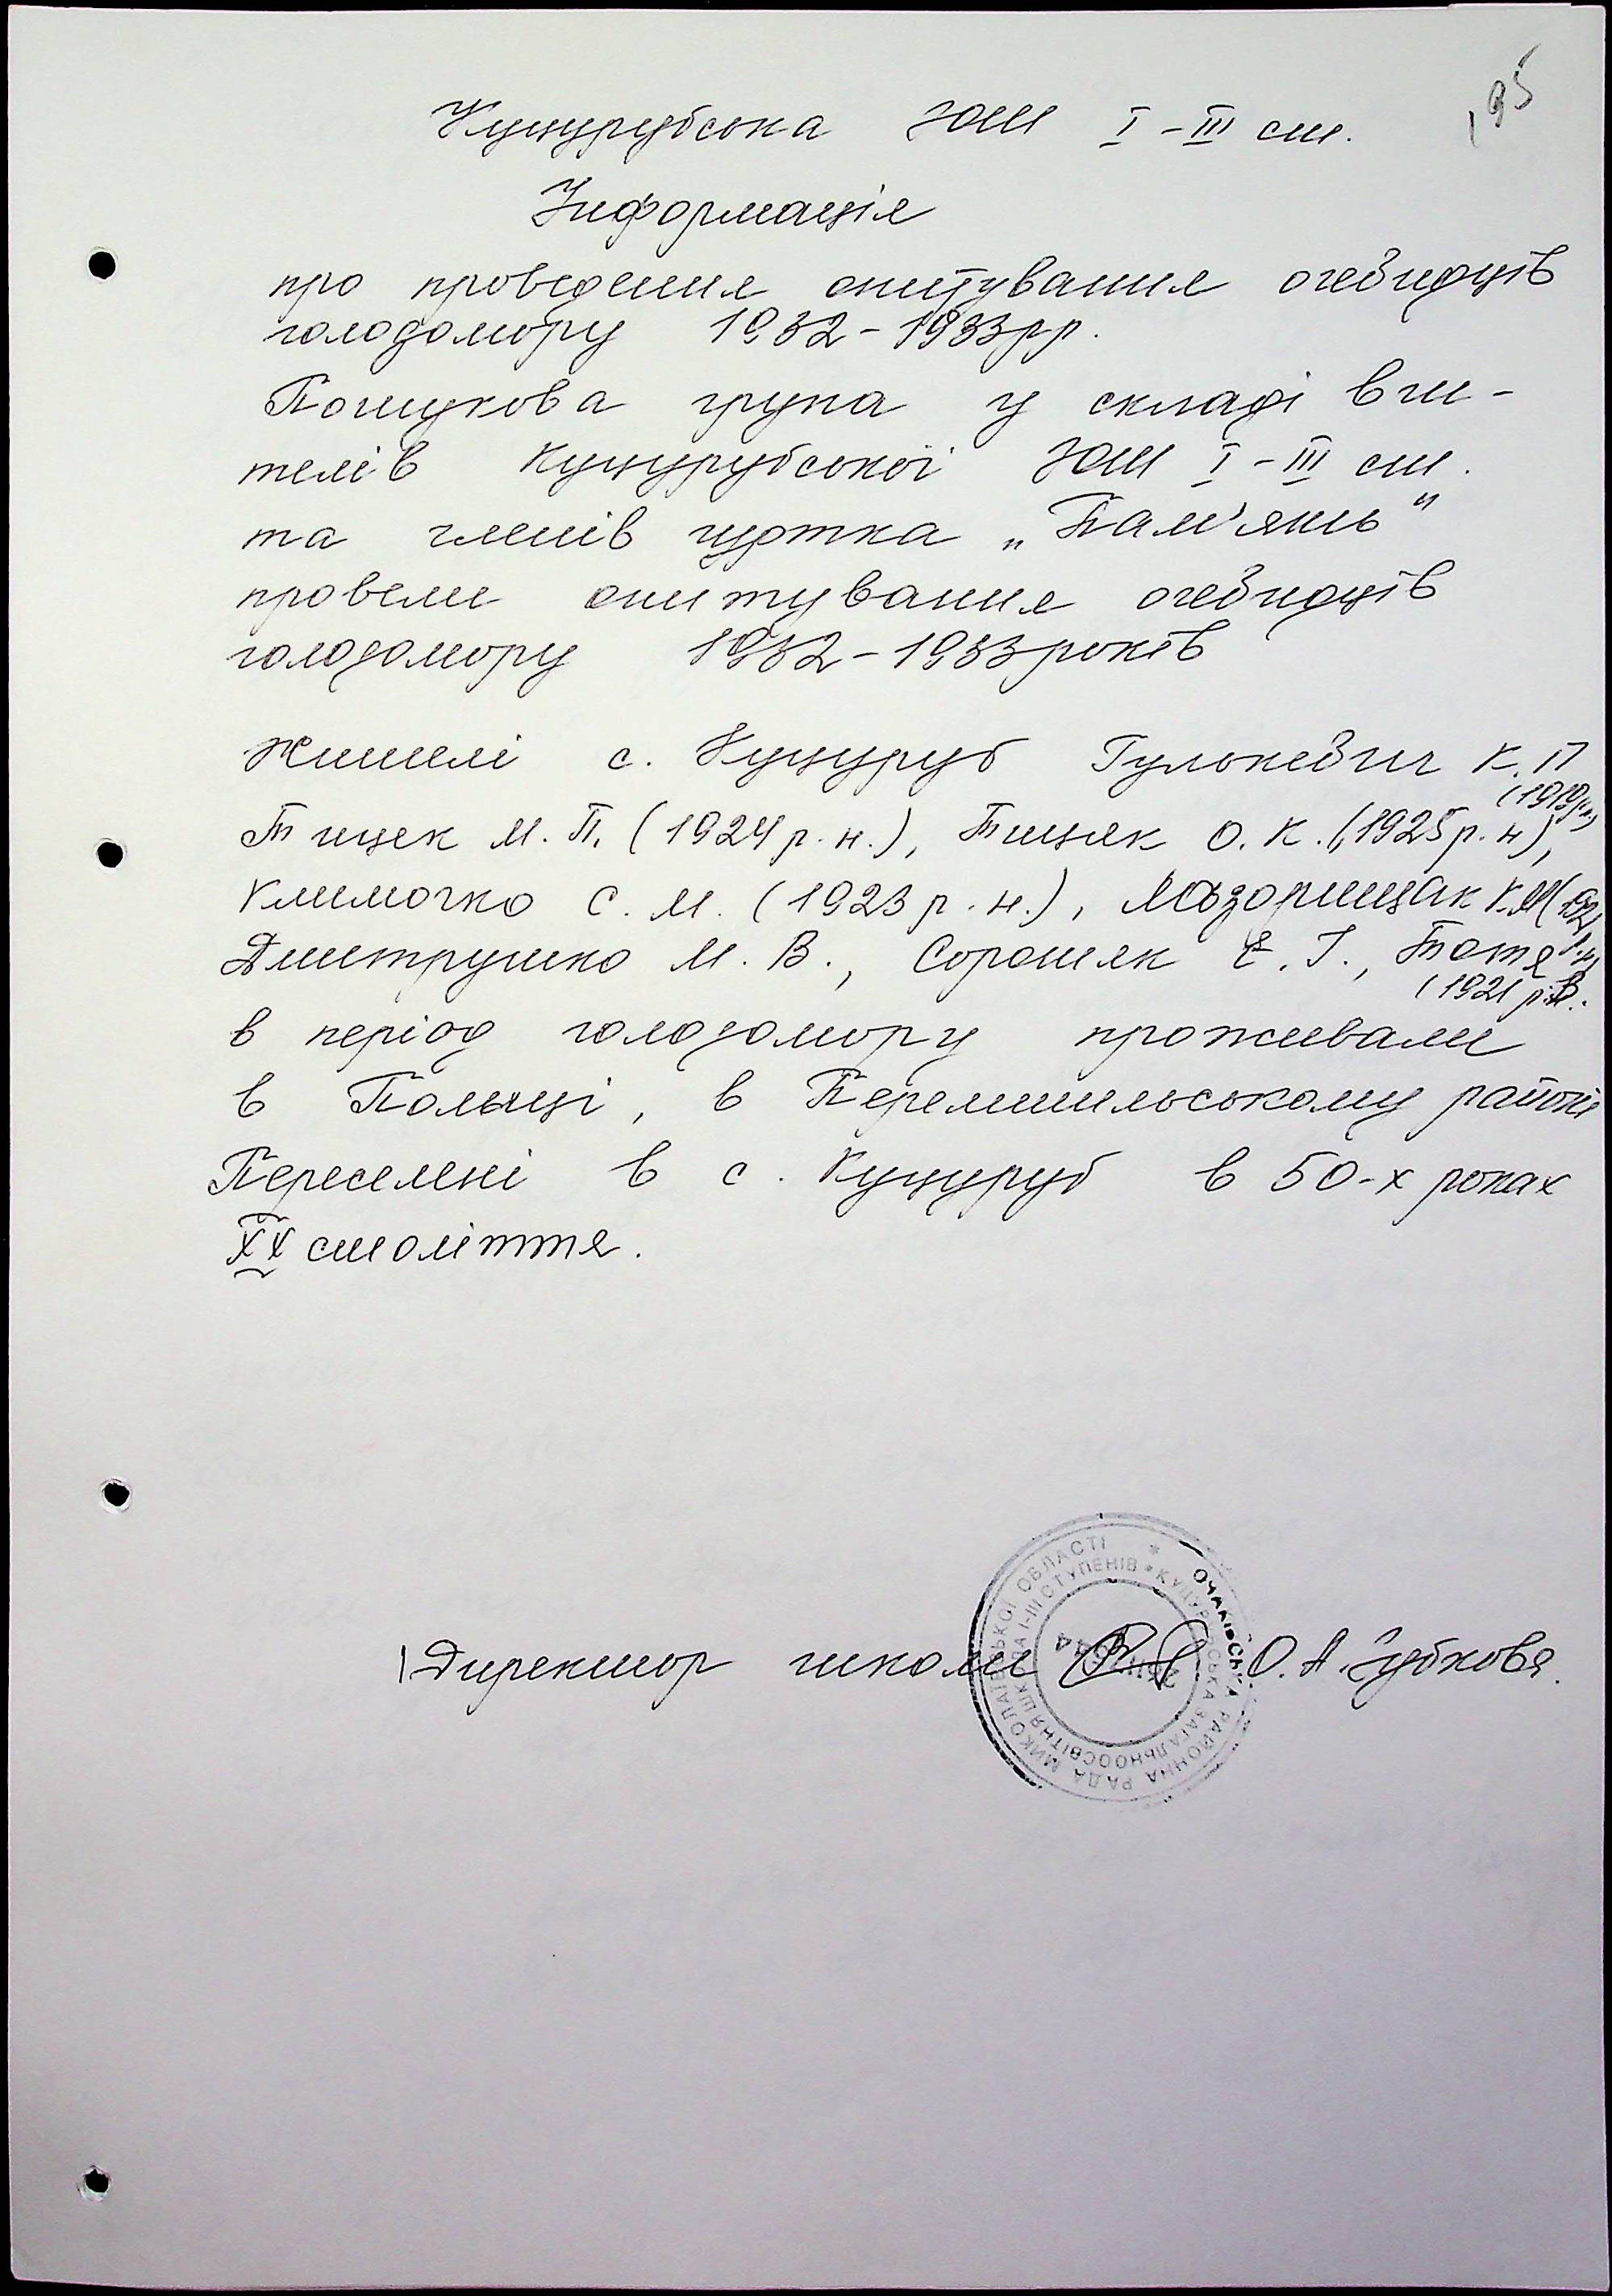 195
Куцурубська ЗОШ I - III ст.
Інформація
про проведення опитування очевидців
голодомору 1932 - 1933 рр.
Пошукова група у складі вчи-
телів Куцурубської ЗОШ I - III ст.
та членів гуртка „Пам'ять"
провели опитування очевидців
голодомору 1932 - 1933 років
Жителі с. Куцуруб Гулькевич К. П
(1919 р.н)
Тицяк М. П. (1924 р. н.), Тицяк О. К. (1925 р. н),
Климочко С. М. (1923 р. н.), К. М (192
Дмитрушко М. В., Сорошяк Є. І., Тотя
(1921 р. В.
в період голодомору проживали
в Польщі, в Перемишльському районі
Переселені в с. Куцуруб в 50-х роках
XX століття.
Директор школи О. А. Зубкова.
ОЧАКІВСЬКА РАЙОННА РАДА МИКОЛАЇВСЬКОЇ ОБЛАСТІ
КУЦУРУБСЬКА ЗАГАЛЬНООСВІТНЯ ШКОЛА І-ІІІ СТУПЕНІВ